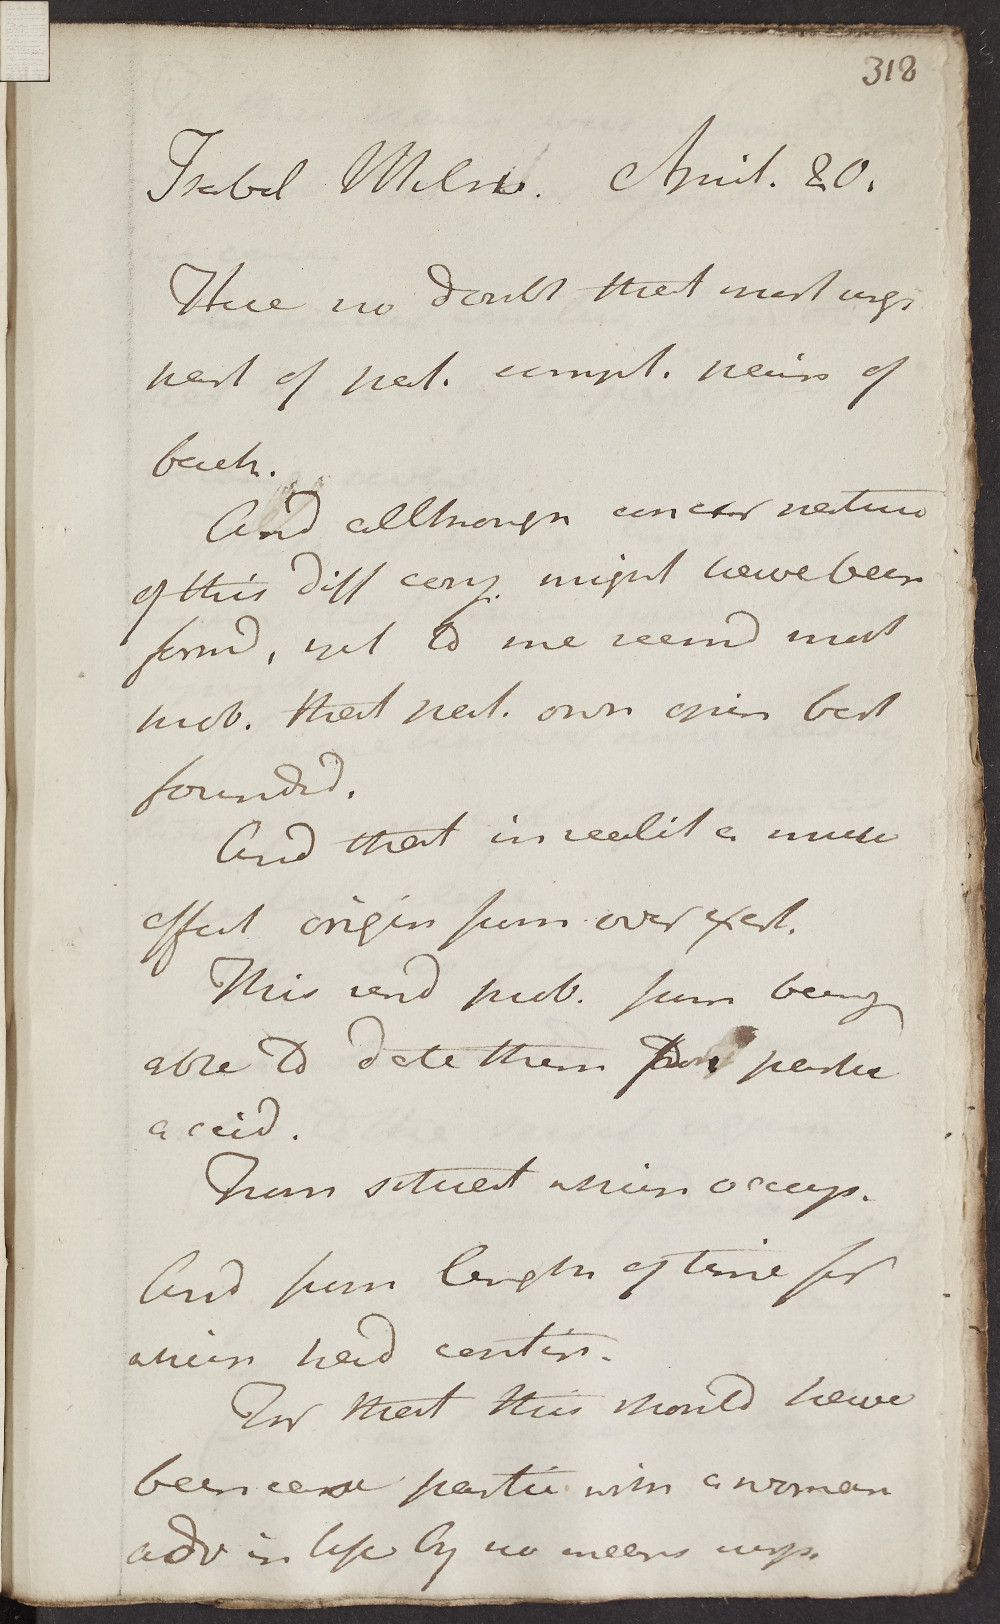 318
Isabel Milne. April. 20.
Here no doubt that most urgt
part of pat. compt. pains of
back.
And allthough concer nature
of this diff conj. might have been
form'd, yet to me seem'd most
prob. that pat. own opin best
founded.
And that in realit a mere
effect origin from over exert.
This rend prob. from being
able to date them from partic
accid.
From situat which occup.
And from length of time for
which had contin.
For that this should have
been case partic with a woman
adv in life by no means surp.